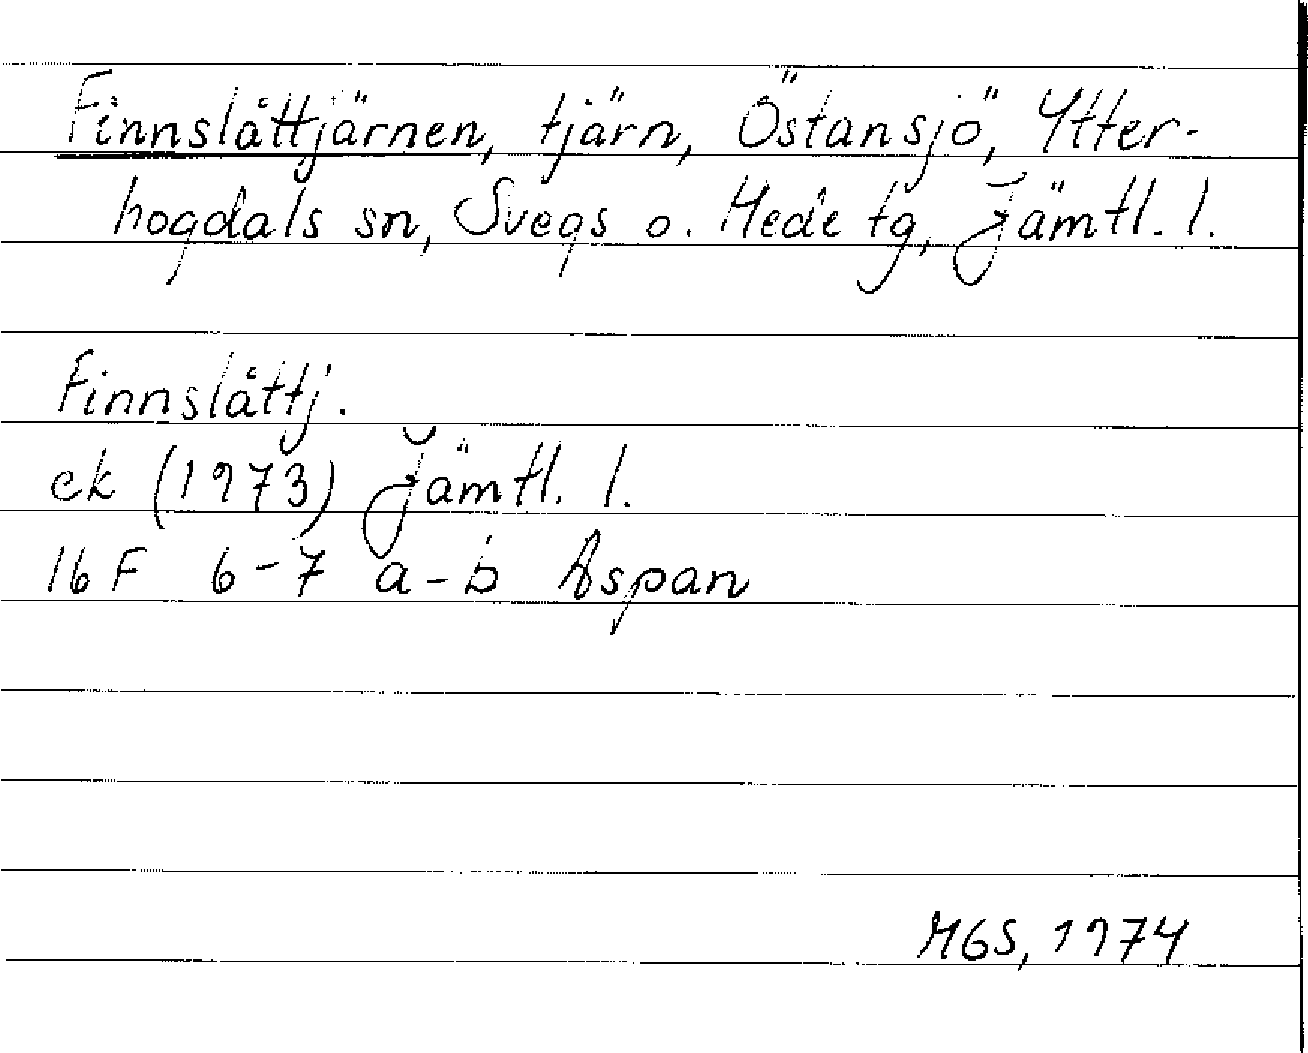 Finnslåttjärnen, tjärn, Östansjö, Ytter-
hogdals sn, Svegs o. Hede tg, Jämtl. l.
Finnslåttj.
ek (1973) Jämtl. l.
16 F 6-7 a-b Aspan
MGS, 1974